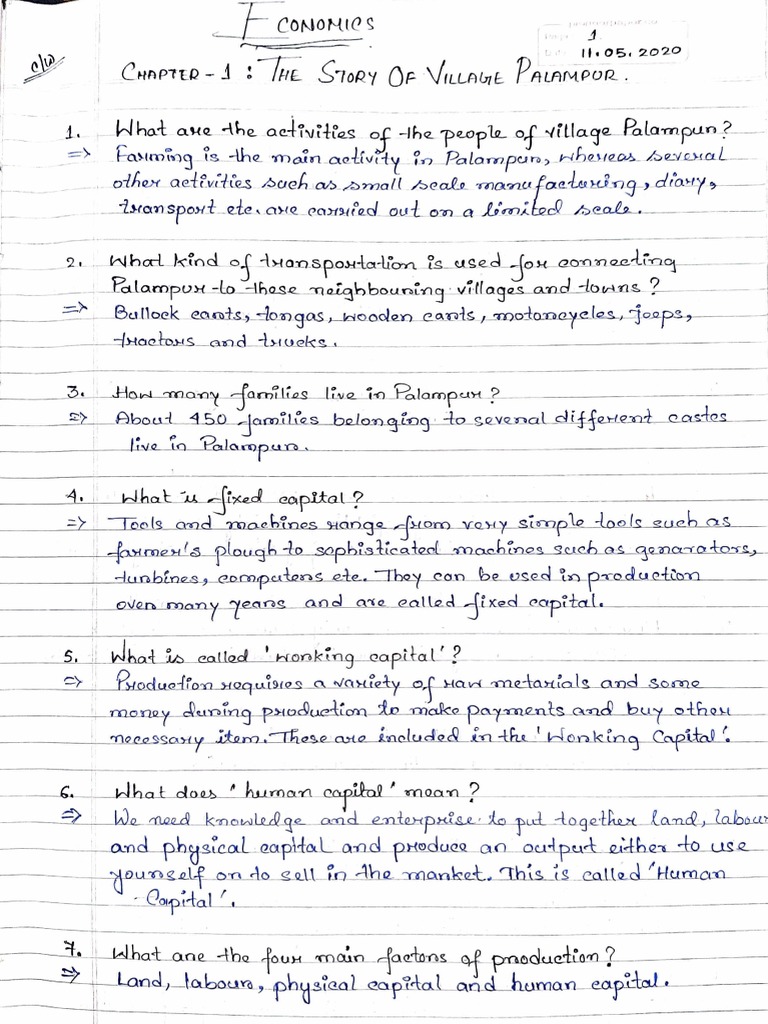 ECONOMICS
1
11.05.2020
C/W
CHAPTER-1: THE STORY OF VILLAGE PALAMPUR.
1. What are the activities of the people of village Palampur?
=> Farming is the main activity in Palampur, whereas several
other activities such as small scale manufacturing, diary,
transport etc. are carried out on a limited scale.
2. What kind of transportation is used for connecting
Palampur to these neighbouring villages and towns?
=> Bullock carts, tongas, wooden carts, motorcycles, jeeps,
tractors and trucks.
3. How many families live in Palampur?
=> About 450 families belonging to several different castes
live in Palampur.
4. What is fixed capital?
=> Tools and machines range from very simple tools such as
farmer's plough to sophisticated machines such as genarators,
turbines, computers etc. They can be used in production
over many years and are called fixed capital.
5. What is called 'working capital'?
=> Production requires a variety of raw metarials and some
money during production to make payments and buy other
necessary item. These are included in the 'Working Capital'.
6. What does 'human capital' mean?
=> We need knowledge and enterprise to put together land, labour
and physical capital and produce an output either to use
yourself or to sell in the market. This is called 'Human
Capital'.
7. What are the four main factors of production?
=> Land, labour, physical capital and human capital.